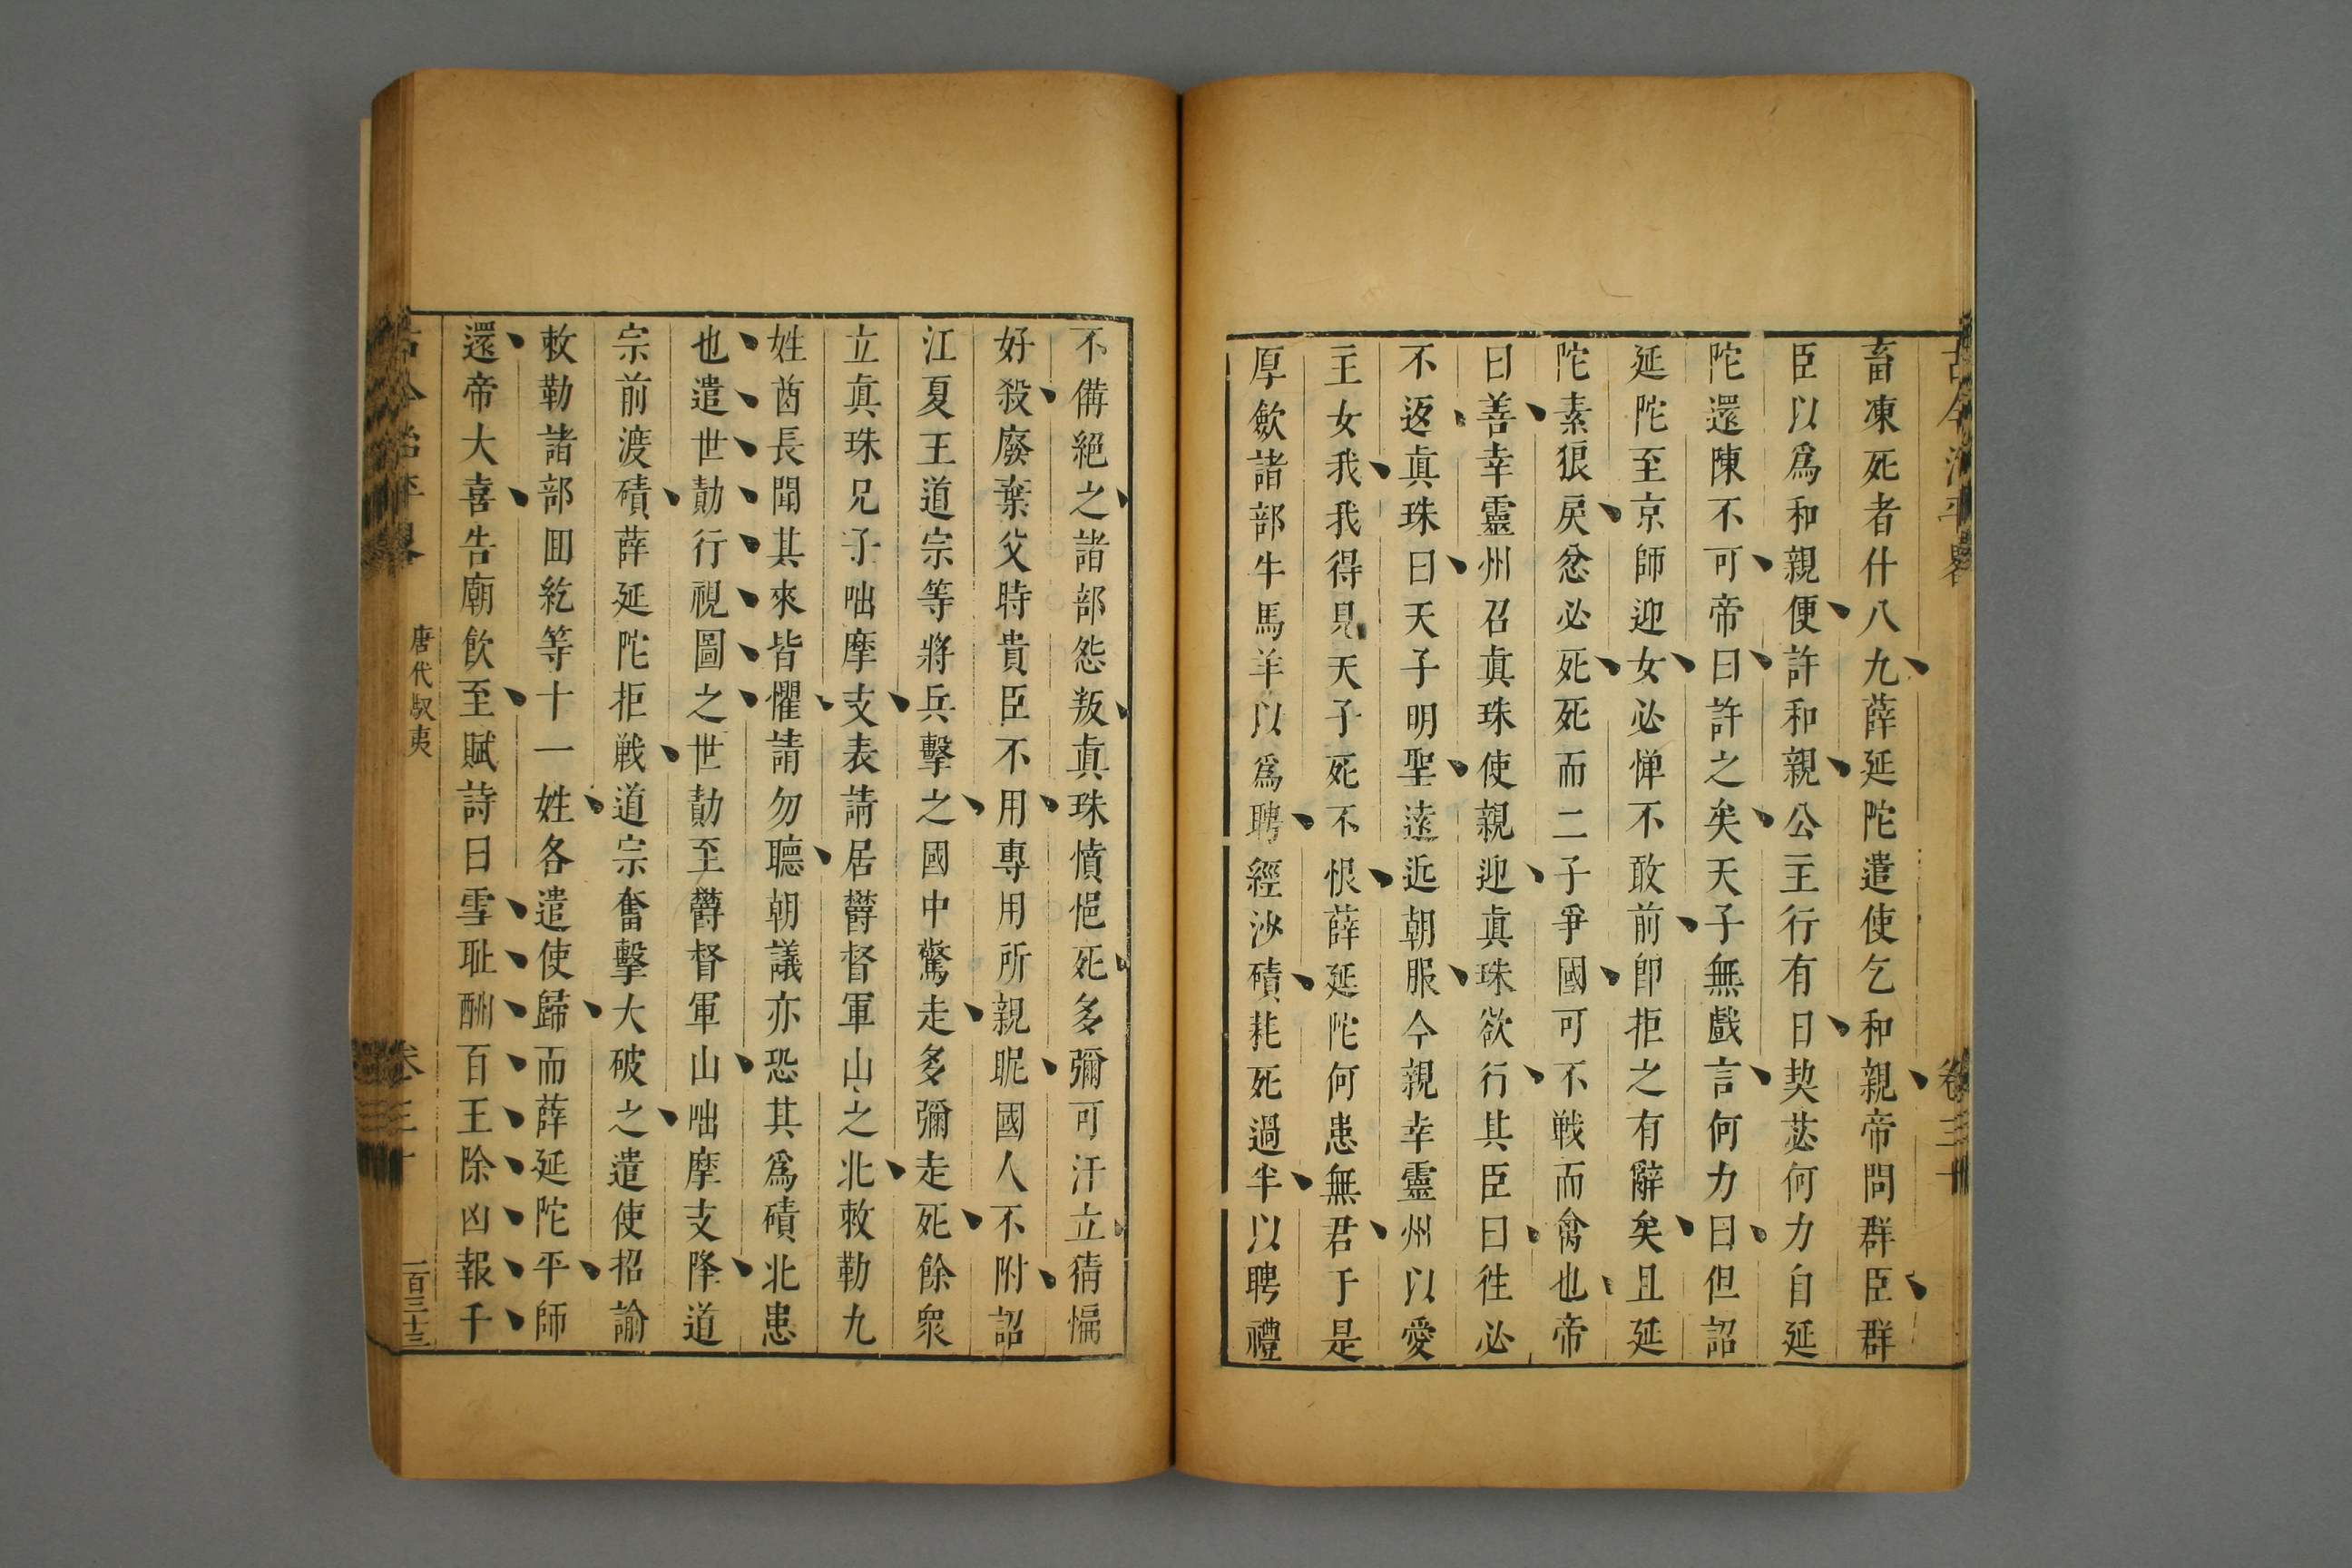 畜凍死者什八九薛延陀遣使乞和親帝問群臣群
臣以爲和親便許和親公主行有日契苾何力自延
陀還陳不可帝曰許之矣天子無戲言何力曰但詔
延陀至京師迎女必憚不敢前卽拒之有辭矣且延
陀素狠戾忿必死死而二子爭國可不戰而禽也帝
曰善幸靈州召眞珠使親迎眞珠欲行其臣曰徃必
不返眞珠曰天子明聖遠近朝服今親幸靈州以愛
主女我我得見天子死不恨薛延陀何患無君于是
厚歛諸部牛馬羊以爲聘經沙磧耗死過半以聘禮
不備絕之諸部怨叛眞珠憤悒死多彌可汗立猜惼
好殺廢棄父時貴臣不用專用所親昵國人不附詔
江夏王道宗等將兵擊之國中驚走多彌走死餘衆
立眞珠兄子咄摩支表請居欝督軍山之北敕勒九
姓酋長聞其來皆懼請勿聽朝議亦恐其爲磧北患
也遣世勣行視圖之世勣至欝督軍山咄摩支降道
宗前渡磧薛延陀拒戰道宗奮擊大破之遣使招諭
敕勒諸部囬紇等十一姓各遣使歸而薛延陀平師
還帝大喜告廟飮至賦詩曰雪耻酬百王除凶報千
唐代馭夷
卷三十
一百三十三